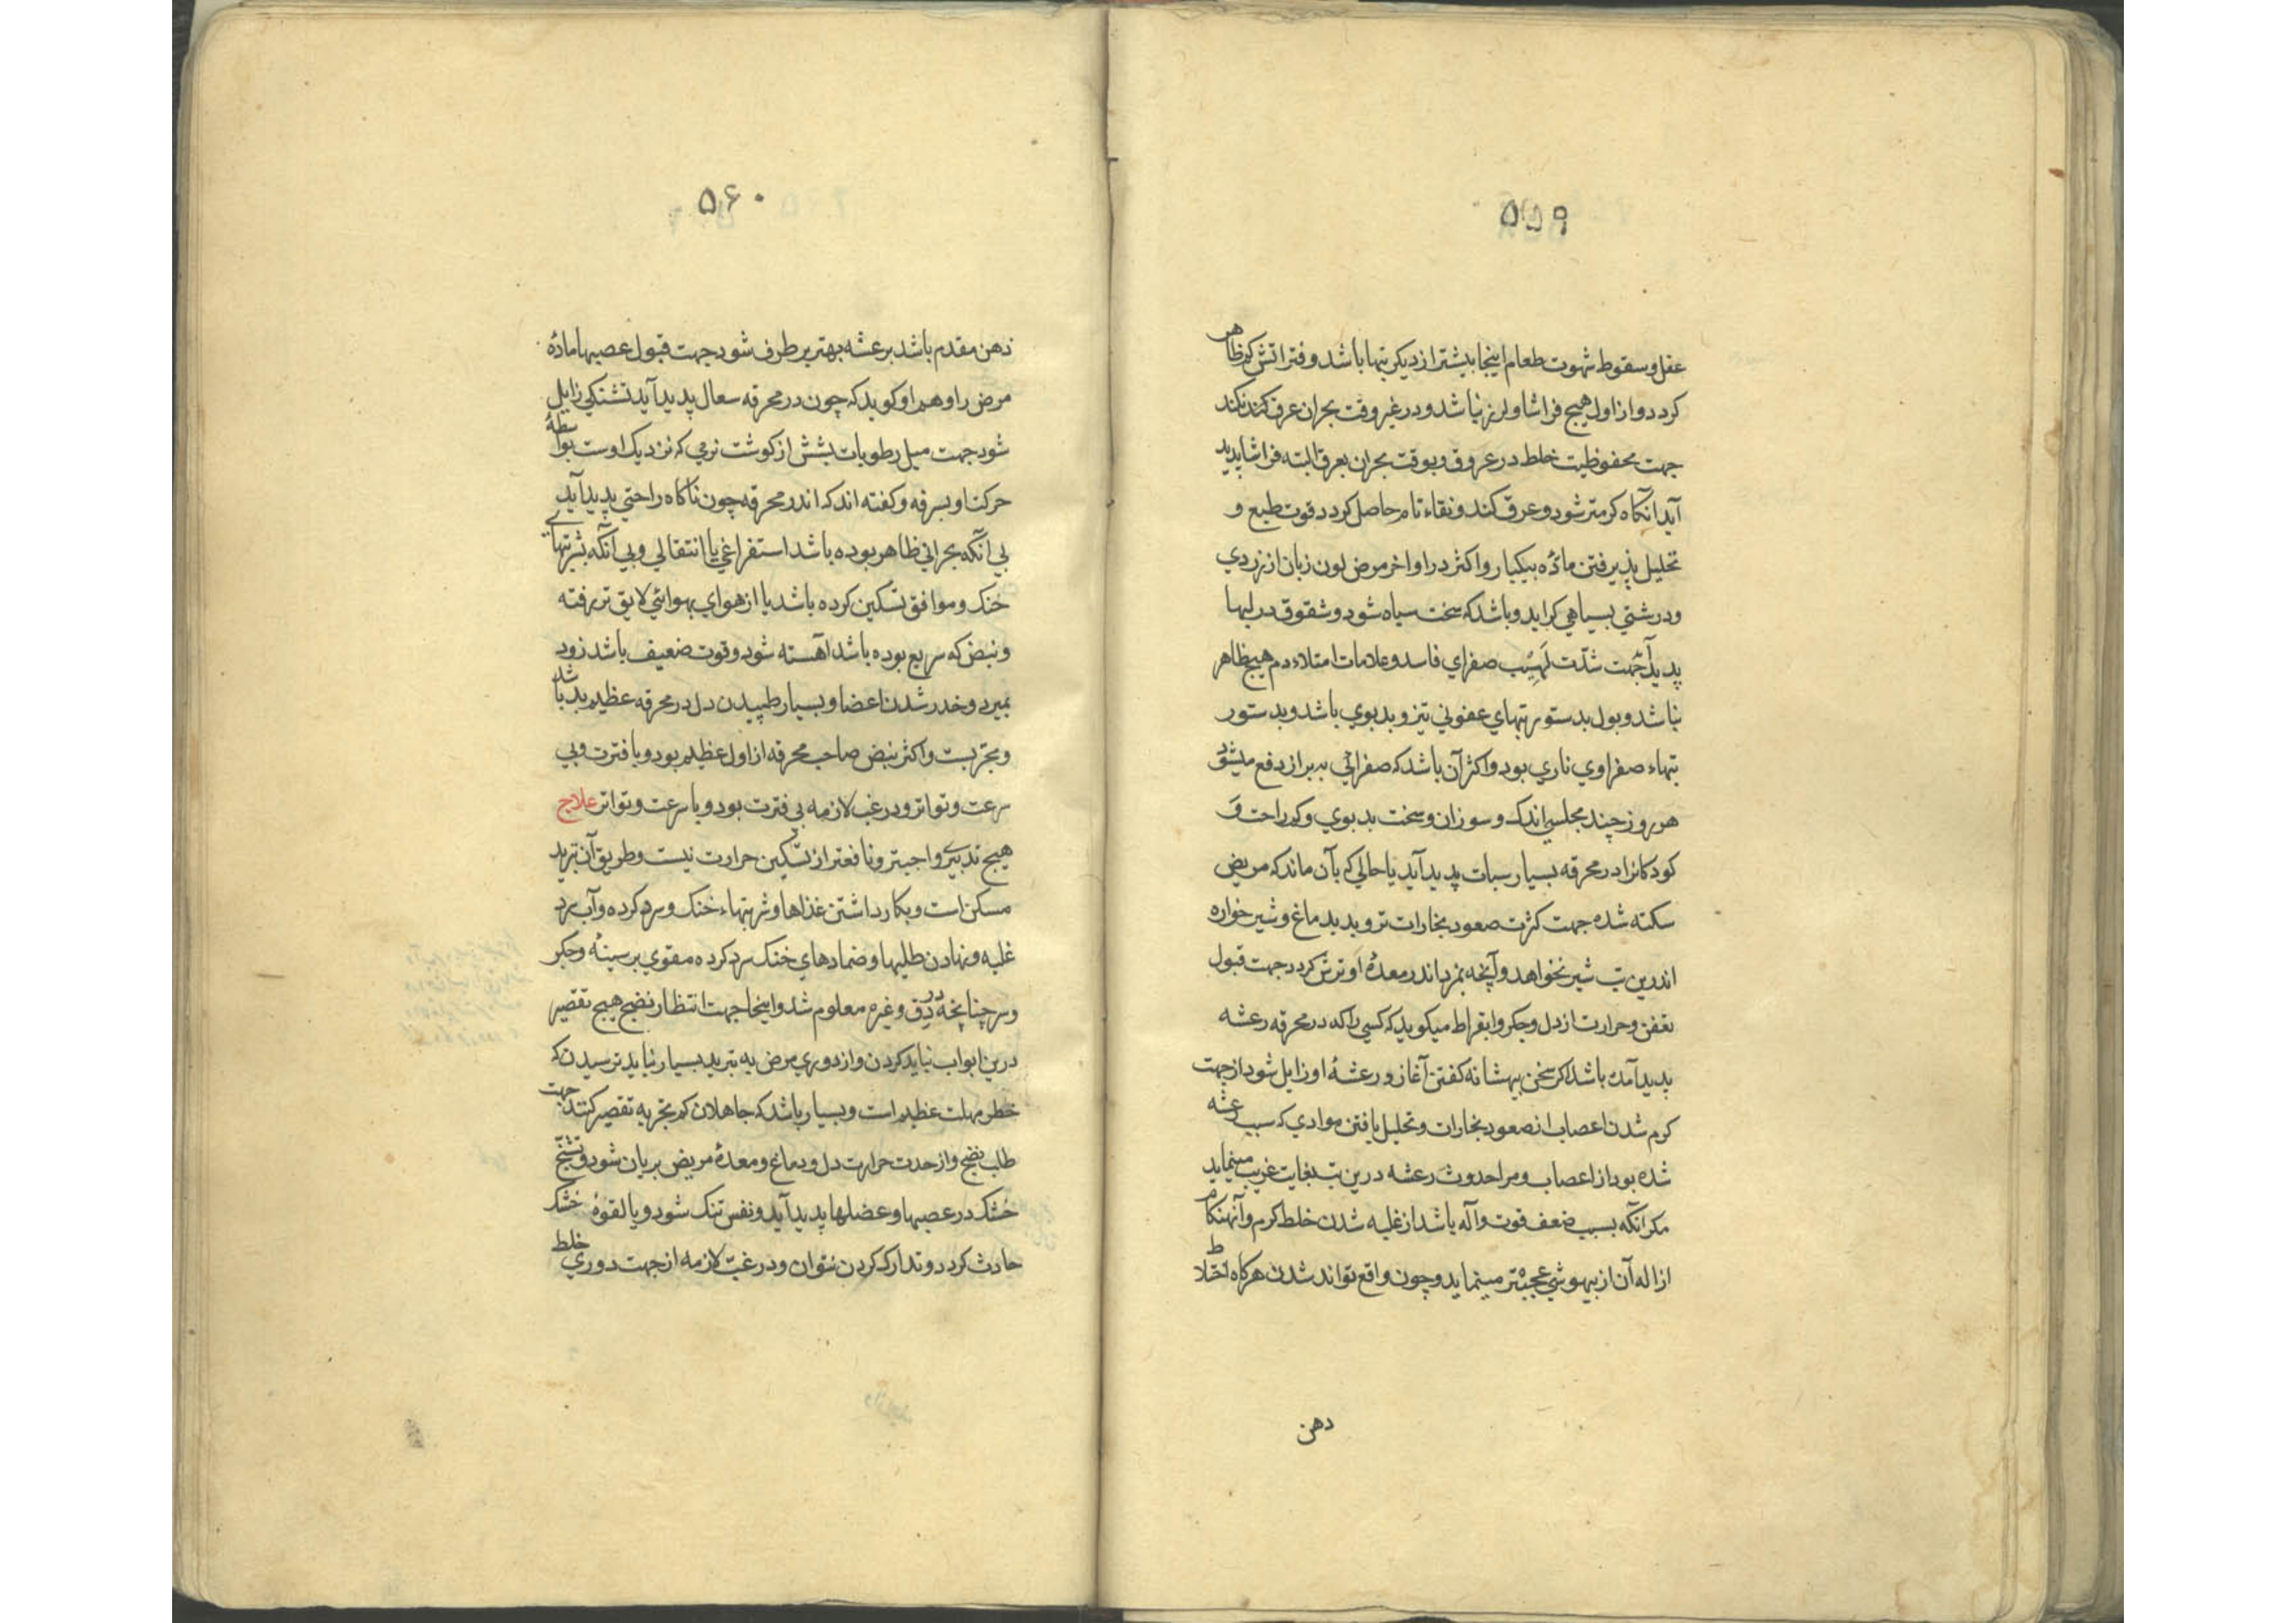 ۵۵۹
عقل و سقوط شهوت طعام اینجا بیشتر از دیکر تبها باشد و فتراتش کم ظاهر
کردد و از اول هیچ فراشا و لرز نباشد و در غیر وقت بحران عرق کند نکند
جهت محفوظیت خلط در عروق و بوقت بحران بعرق البته فراشا پدید
آید آنکاه کرمتر شود و عرق کند و نقاء تام حاصل کردد قوت طبع و
تحلیل پذیرفتن مادّه بیکبار و اکثر در اواخر مرض لون زبان از زردي
و درشتي بسیاهي کراید و باشد که سخت سیاه شود و شقوق در لبها
پدید آید جهت شدّت لهیب صفراي فاسد و علامات امتلاء دم هیچ ظاهر
نباشد و بول بدستور تبهاي عفوني تیز و بدبوي باشد و بدستور
تبهاء صفراوي ناري بود و اکثر آن باشد که صفرائي به براز دفع میشود
هر روز چند مجلسي اندک و سوزان و سخت بدبوي و کم راحت و
کودکانرا در محرقه بسیار سبات پدید آید یا حالي که بآن ماند که مریض
سکته شده جهت کثرت صعود بخارات تر و بد بدماغ و شیرخواره
اندرین تب شیر نخواهد و آنچه بمزد اندر معدهٔ او ترش کردد جهت قبول
تعفن و حرارت از دل و جکر و ابقراط میکوید که کسي را که در محرقه رعشه
پدید آمده باشد اکر سخن بیهشانه کفتن آغازد رعشهٔ او زایل شود از جهت
کرم شدن اعصاب از صعود بخارات و تحلیل یافتن موادي که سبب رعشه
شده بود از اعصاب و مرا حدوث رعشه درین تب بغایت غریب مینماید
مکر آنکه بسبب ضعف قوت و آله باشد از غلبه شدن خلط کرم و آنهنکام
ازاله آن از بیهوشي عجیبتر مینماید و چون واقع تواند شدن هرکاه اختلاط
دهن
۵۶۰
ذهن مقدم باشد بر عشه بهتر برطرف شود جهت قبول عصبها مادّهٔ
مرض را و هم او کوید که چون در محرقه سعال پدید آید تشنکي زایل
شود جهت میل رطوبات بشش از کوشت نرمي که نزدیک اوست بواسطهٔ
حرکت او بسرفه و کفته اند که اندر محرقه چون ناکاه راحتي پدید آید
بي آنکه بحراني ظاهر بوده باشد استفراغي یا انتقالي و بي آنکه شربتهاي
خنک و موافق تسکین کرده باشد یا از هواي بهوائي لایق تر رفته
و نبض که سریع بوده باشد آهسته شود و قوت ضعیف باشد زود
بمیرد و خدر شدن اعضا و بسیار طپیدن دل در محرقه عظیم بد باشد
و مجربست و اکثر نبض صاحب محرقه از اول عظیم بود و با فترت و بي
سرعت و تواتر و در غب لازمه بي فترت بود و با سرعت و تواتر علاج
هیچ تدبیري واجبتر و نافعتر از تسکین حرارت نیست و طریق آن تبرید
مسکن است و بکار داشتن غذاها و شربتهاء خنک و سرد کرده و آب سرد
غلبه و نهادن طلیها و ضمادهاي خنک سرد کرده مقوي بر سینهٔ و جکر
و سر چنانچه در دق و غیره معلوم شد و اینجا جهت انتظار نضج هیچ تقصیر
درین ابواب نباید کردن و از دوري مرض به تبرید بسیار نباید ترسیدن که
خطر مهلت عظیم است و بسیار باشد که جاهلان کم تجربه تقصیر کنند جهت
طلب نضج و از حدت حرارت دل و دماغ و معدهٔ مریض بریان شود و تشنج
خشک در عصبها و عضلها پدید آید و نفس تنک شود و یا لقوهٔ خشک
حادث کردد و تدارک کردن نتوان و در غب لازمه از جهت دوري خلط